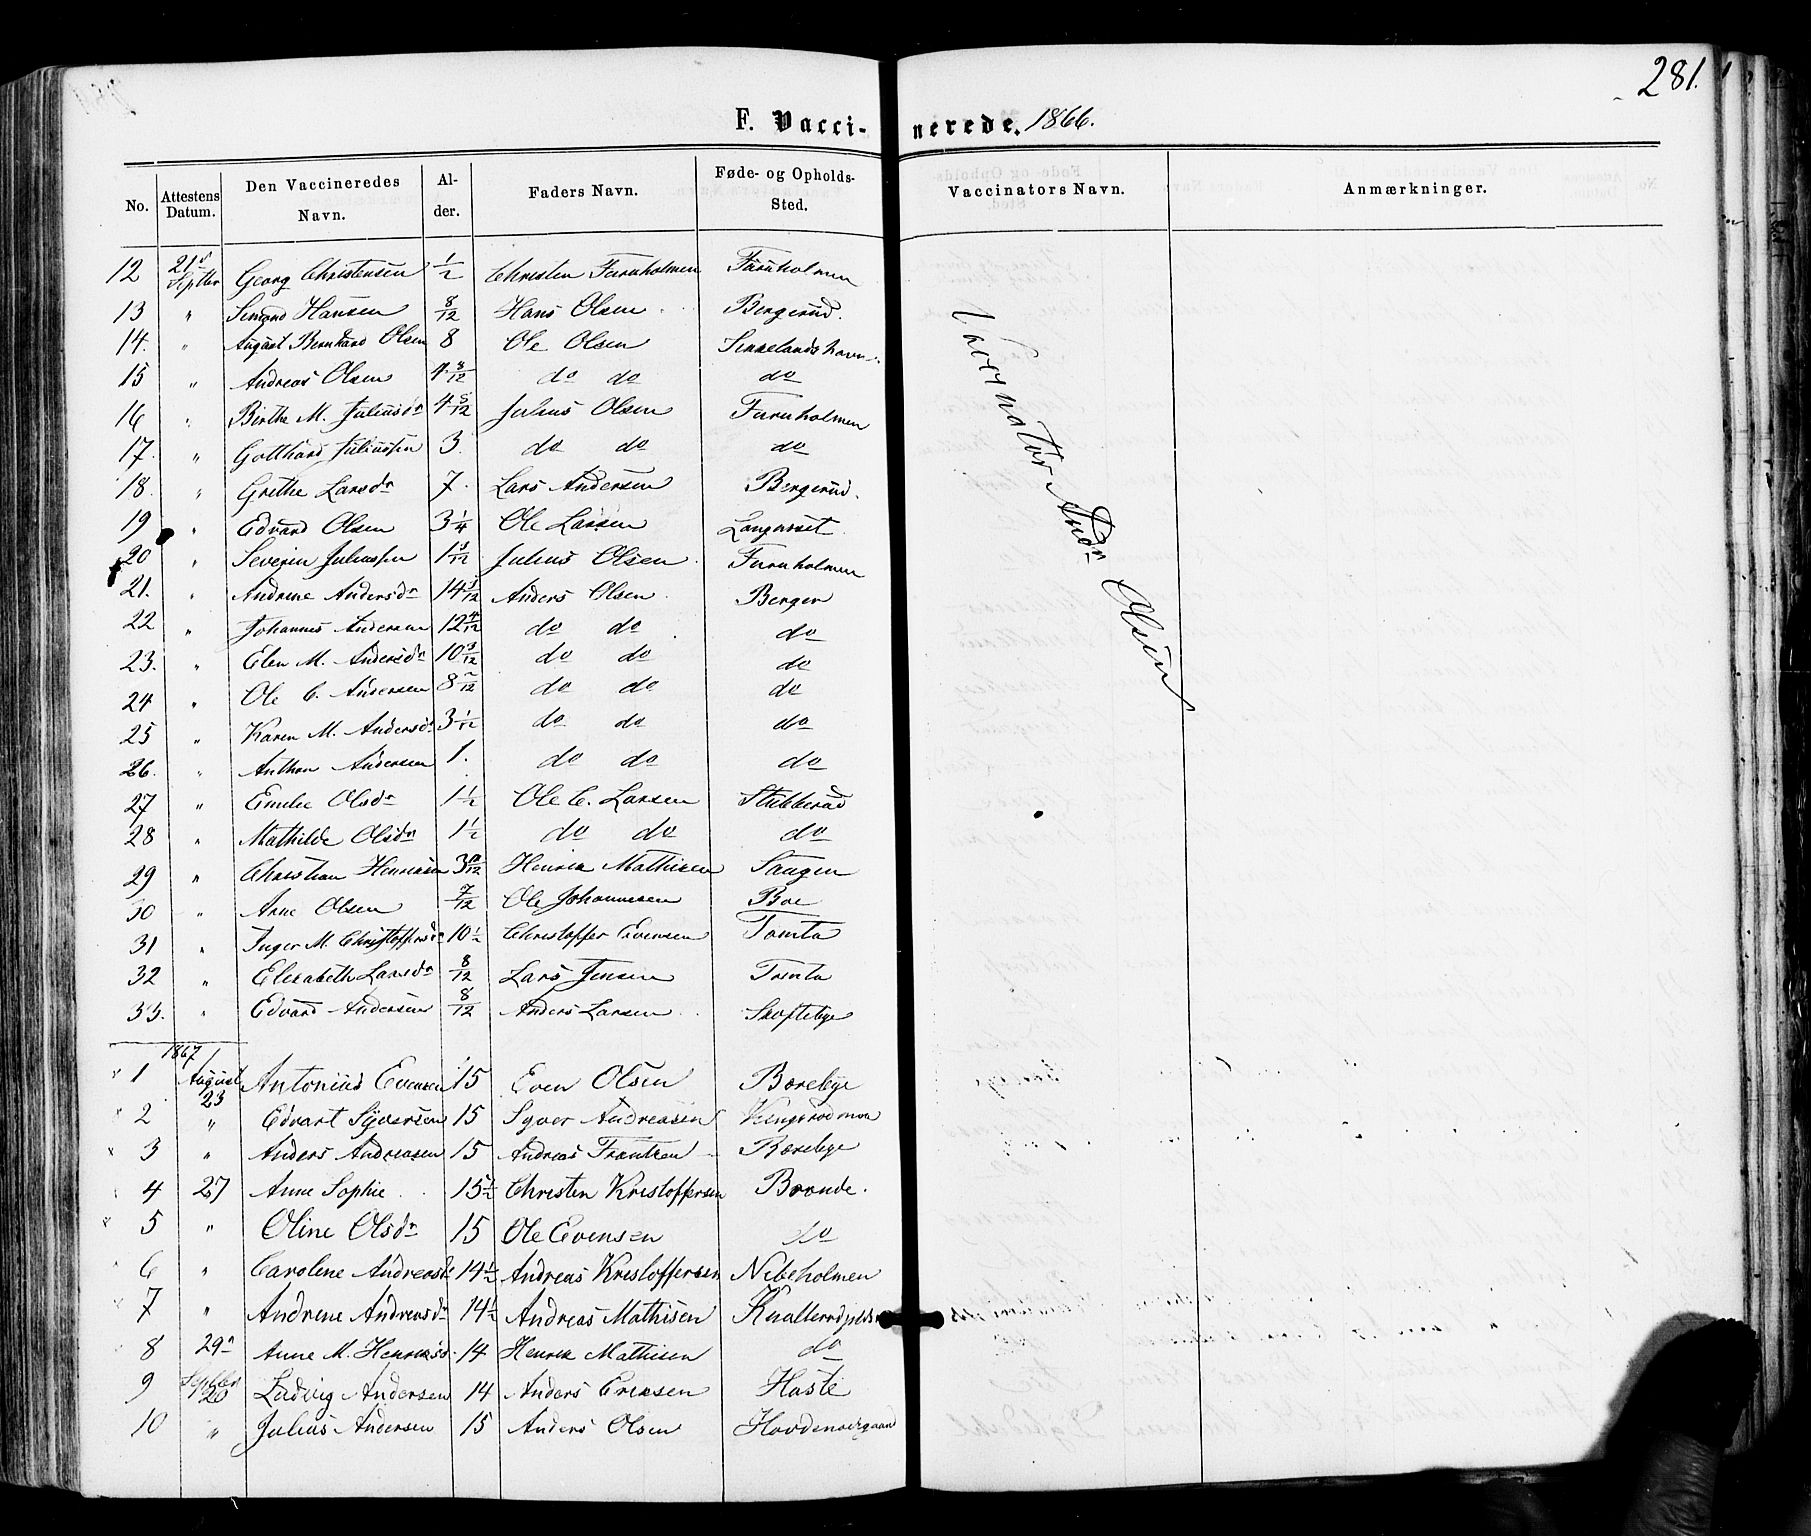 281.
F. Vaccinerede. 1866.
No. | Attestens Datum. | Den Vaccineredes Navn. | Alder. | Faders Navn. | Føde- og Opholds-Sted. | Vaccinators Navn. | Anmærkninger.
12 21d Septbr Georg Christensen 1/2 Christen Furuholmen Furuholmen
13 " Simond Hansen 8/12 Hans Olsen Bergerud.
14. " August Bernhard Olsen 8 Ole Olsen
15 " Andreas Olsen 4 8/12 do do do
16 " Birthe M. Juliusdr 4 8/12 Julius Olsen Furuholmen
17. " Gotthard Juliussen 3. do do do
18. " Grethe Larsdr 7. Lars Andersen Bergerud.
19 " Edvard Olsen 3 1/4 Ole Larsen Langerset.
20 " Severin Juliussen 1 3/12 Julius Olsen Furuholmen
21. " Andrine Andersdr 14 3/12 Anders Olsen Berger
22 " Johannes Andersen 12 4/12 do do do
23. " Elen M. Andersdr 10 3/12 do do do
24 " Ole C. Andersen 8 7/12 do do do
25 " Karen M. Andersdr 3 1/12 do do do
26. " Anthon Andersen 1. do do do
27 " Emilie Olsdr 1 1/2 Ole C. Larsen Stubberud
28 " Mathilde Olsdr 1 1/2 do do do
29 " Christian Henriksen 3 10/12 Henrik Mathisen Saugen
30 " Anne Olsen 7/12 Ole Johannesen Boe
31 " Inger M. Christoffersdr 10 1/2 Christoffer Evensen Tomta
32 " Elisabeth Larsdr 8/12 Lars Jensen Tomta
33. " Edvard Andersen 8/12 Anders Larsen Skoftebye
Vaccinatør Andr Olsen
1867
1 August 23 Antonius Evensen 15 Even Olsen Borebye
2 " Edvart Syversen 15 Syver Andreasen
3 " Anders Andreasen 15 Andreas Frantzen Borebye
4 27 Anne Sophie 15 1/2 Christen Kristoffersen Braade.
5 " Oline Olsdr 15 Ole Evensen do
6 " Carolene Andreasd 14 1/2 Andreas Kristoffersen Nebeholmen
7 " Andrene Andreasdr 14 1/2 Andreas Mathisen
8 29n Anne M. Henriksd 14 Henrik Mathisen do
9 Septbr 20 Ludvig Andersen 14 Anders Eriksen Haste
10 " Julius Andersen 15 Anders Olsen